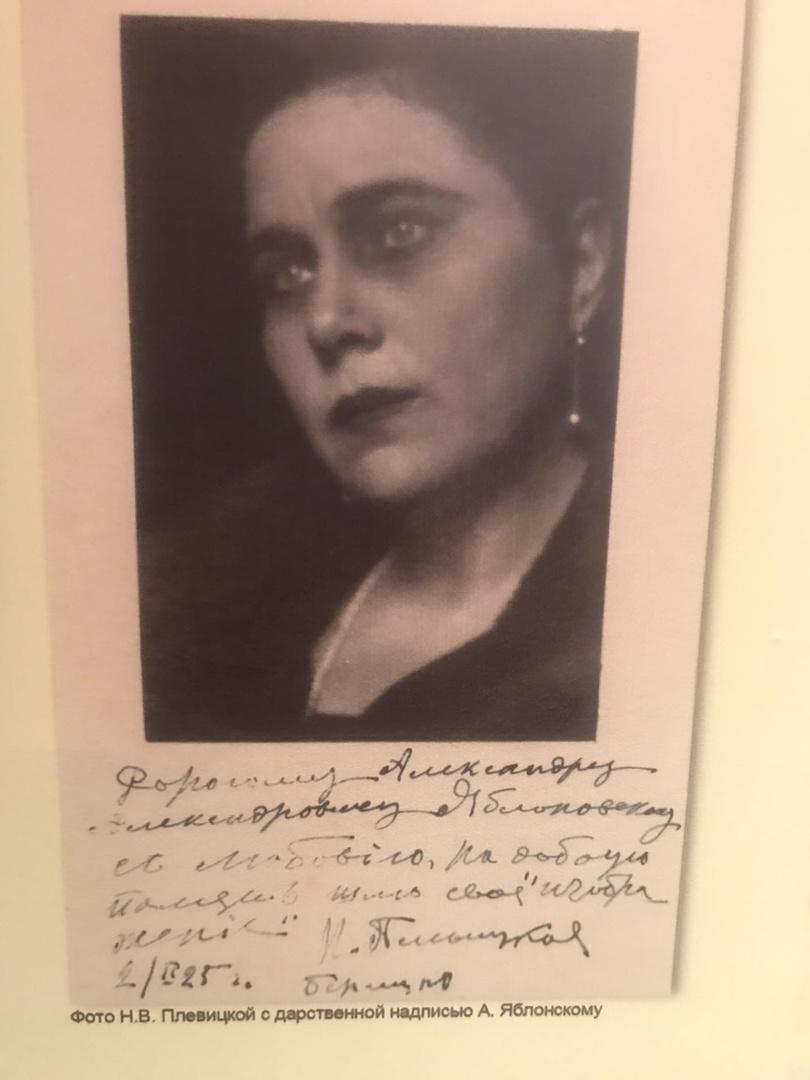 Дорогому Александру
Александровичу Яблоновскому
съ Любовію, на добрую
память шлю своё "изобра
женіе" Н. Плевицкая
2/II 25 г. Берлинъ
Фото Н.В. Плевицкой с дарственной надписью А. Яблонскому